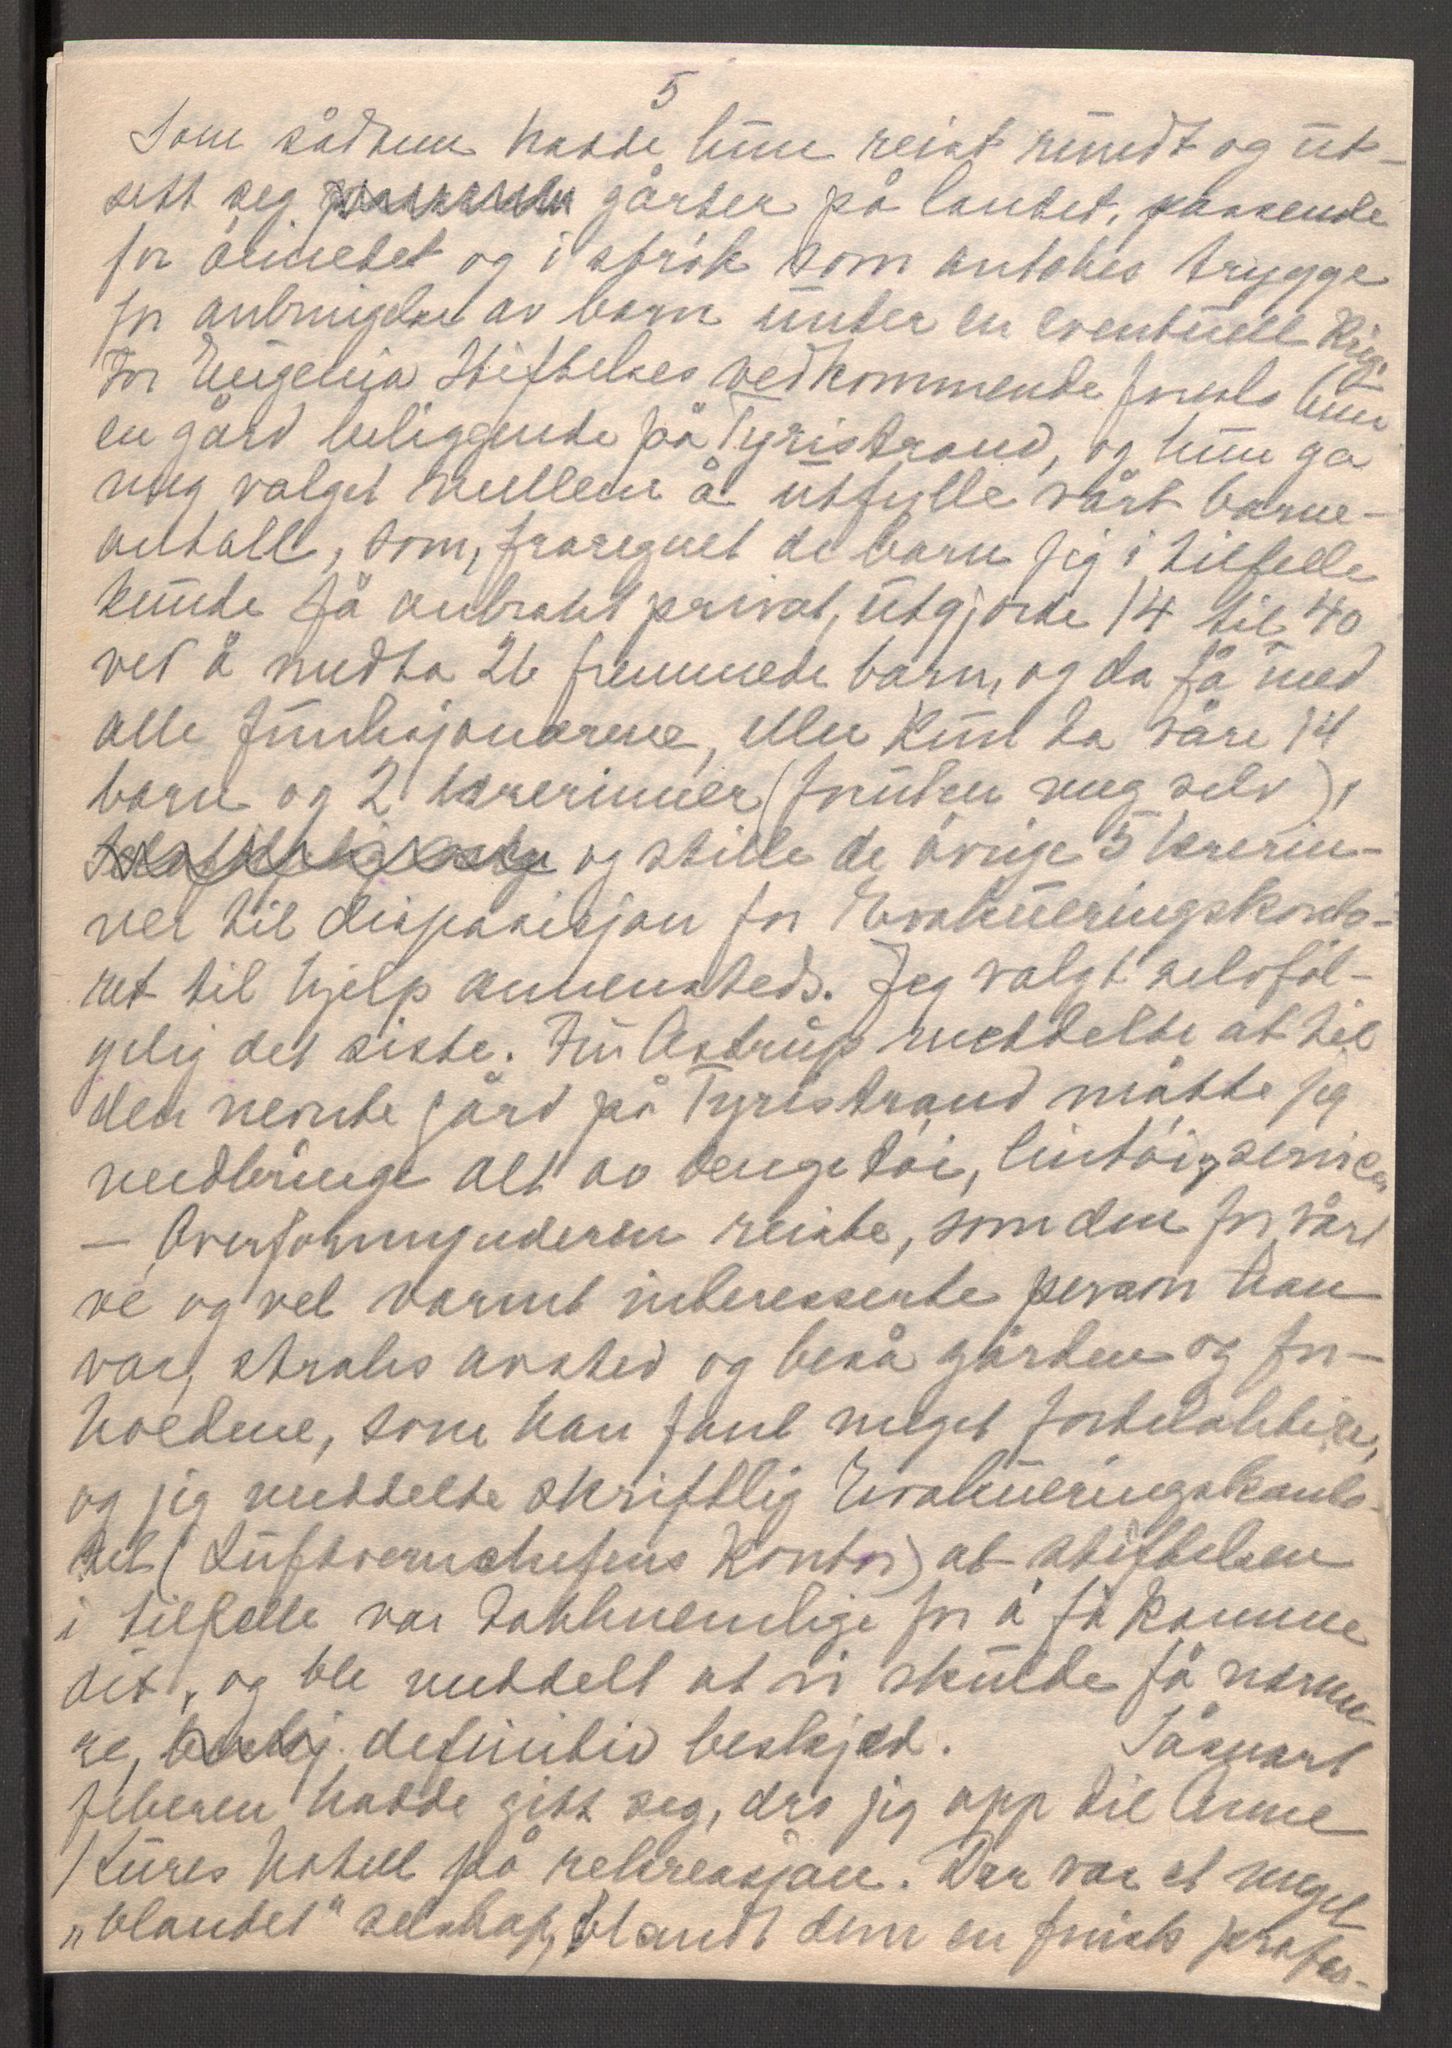 5
Som sådann hadde hun reist rundt og ut-
sett seg passende gårder på landet, passende
for öiemedet og i strök som antokes trygge
for anbringelse av barn under en eventuell Krig.
For Eugenia Stiftelses vedkommende foreslo hun
en gård beliggende på Tyristrand, og hun ga
meg valget mellem å utfylle vårt barne-
antall, som, fraregnet de barn jeg i tilfelle
kunde få anbrakt privat, utgjorde 14 til 40
ved å medta 26 fremmede barn, og da få med
alle funksjonærene, eller kun ta våre 14
barn og 2 lærerinner (foruten meg selv),
og stille de övrige 5 lærerin-
ner til disposisjon for Evakueringskonto-
ret til hjelp annensteds. Jeg valgt selvföl-
gelig det siste. Fru Astrup meddelte at til
den nevnte gård på Tyristrand måtte jeg
medbringe alt av sengetöi, lintöi, servicer
– Overformynderen reiste, som den for vårt
ve og vel varmt interesserte person han
var, straks avsted og beså gården og for-
holdene, som han fant meget fordelaktige,
og jeg meddelte skriftlig Evakueringskonto-
ret (Luftvernchefens Kontor) at stiftelsen
i tilfelle var takknemlige for å få komme
dit, og ble meddelt at vi skulde få nærme-
re, beskj. definitiv beskjed. Såsnart
feberen hadde gitt seg, dro jeg opp til Arne
Kures hotell på rekreasjon. Der var et meget
„blandet" selskap, blandt dem en finsk profes-